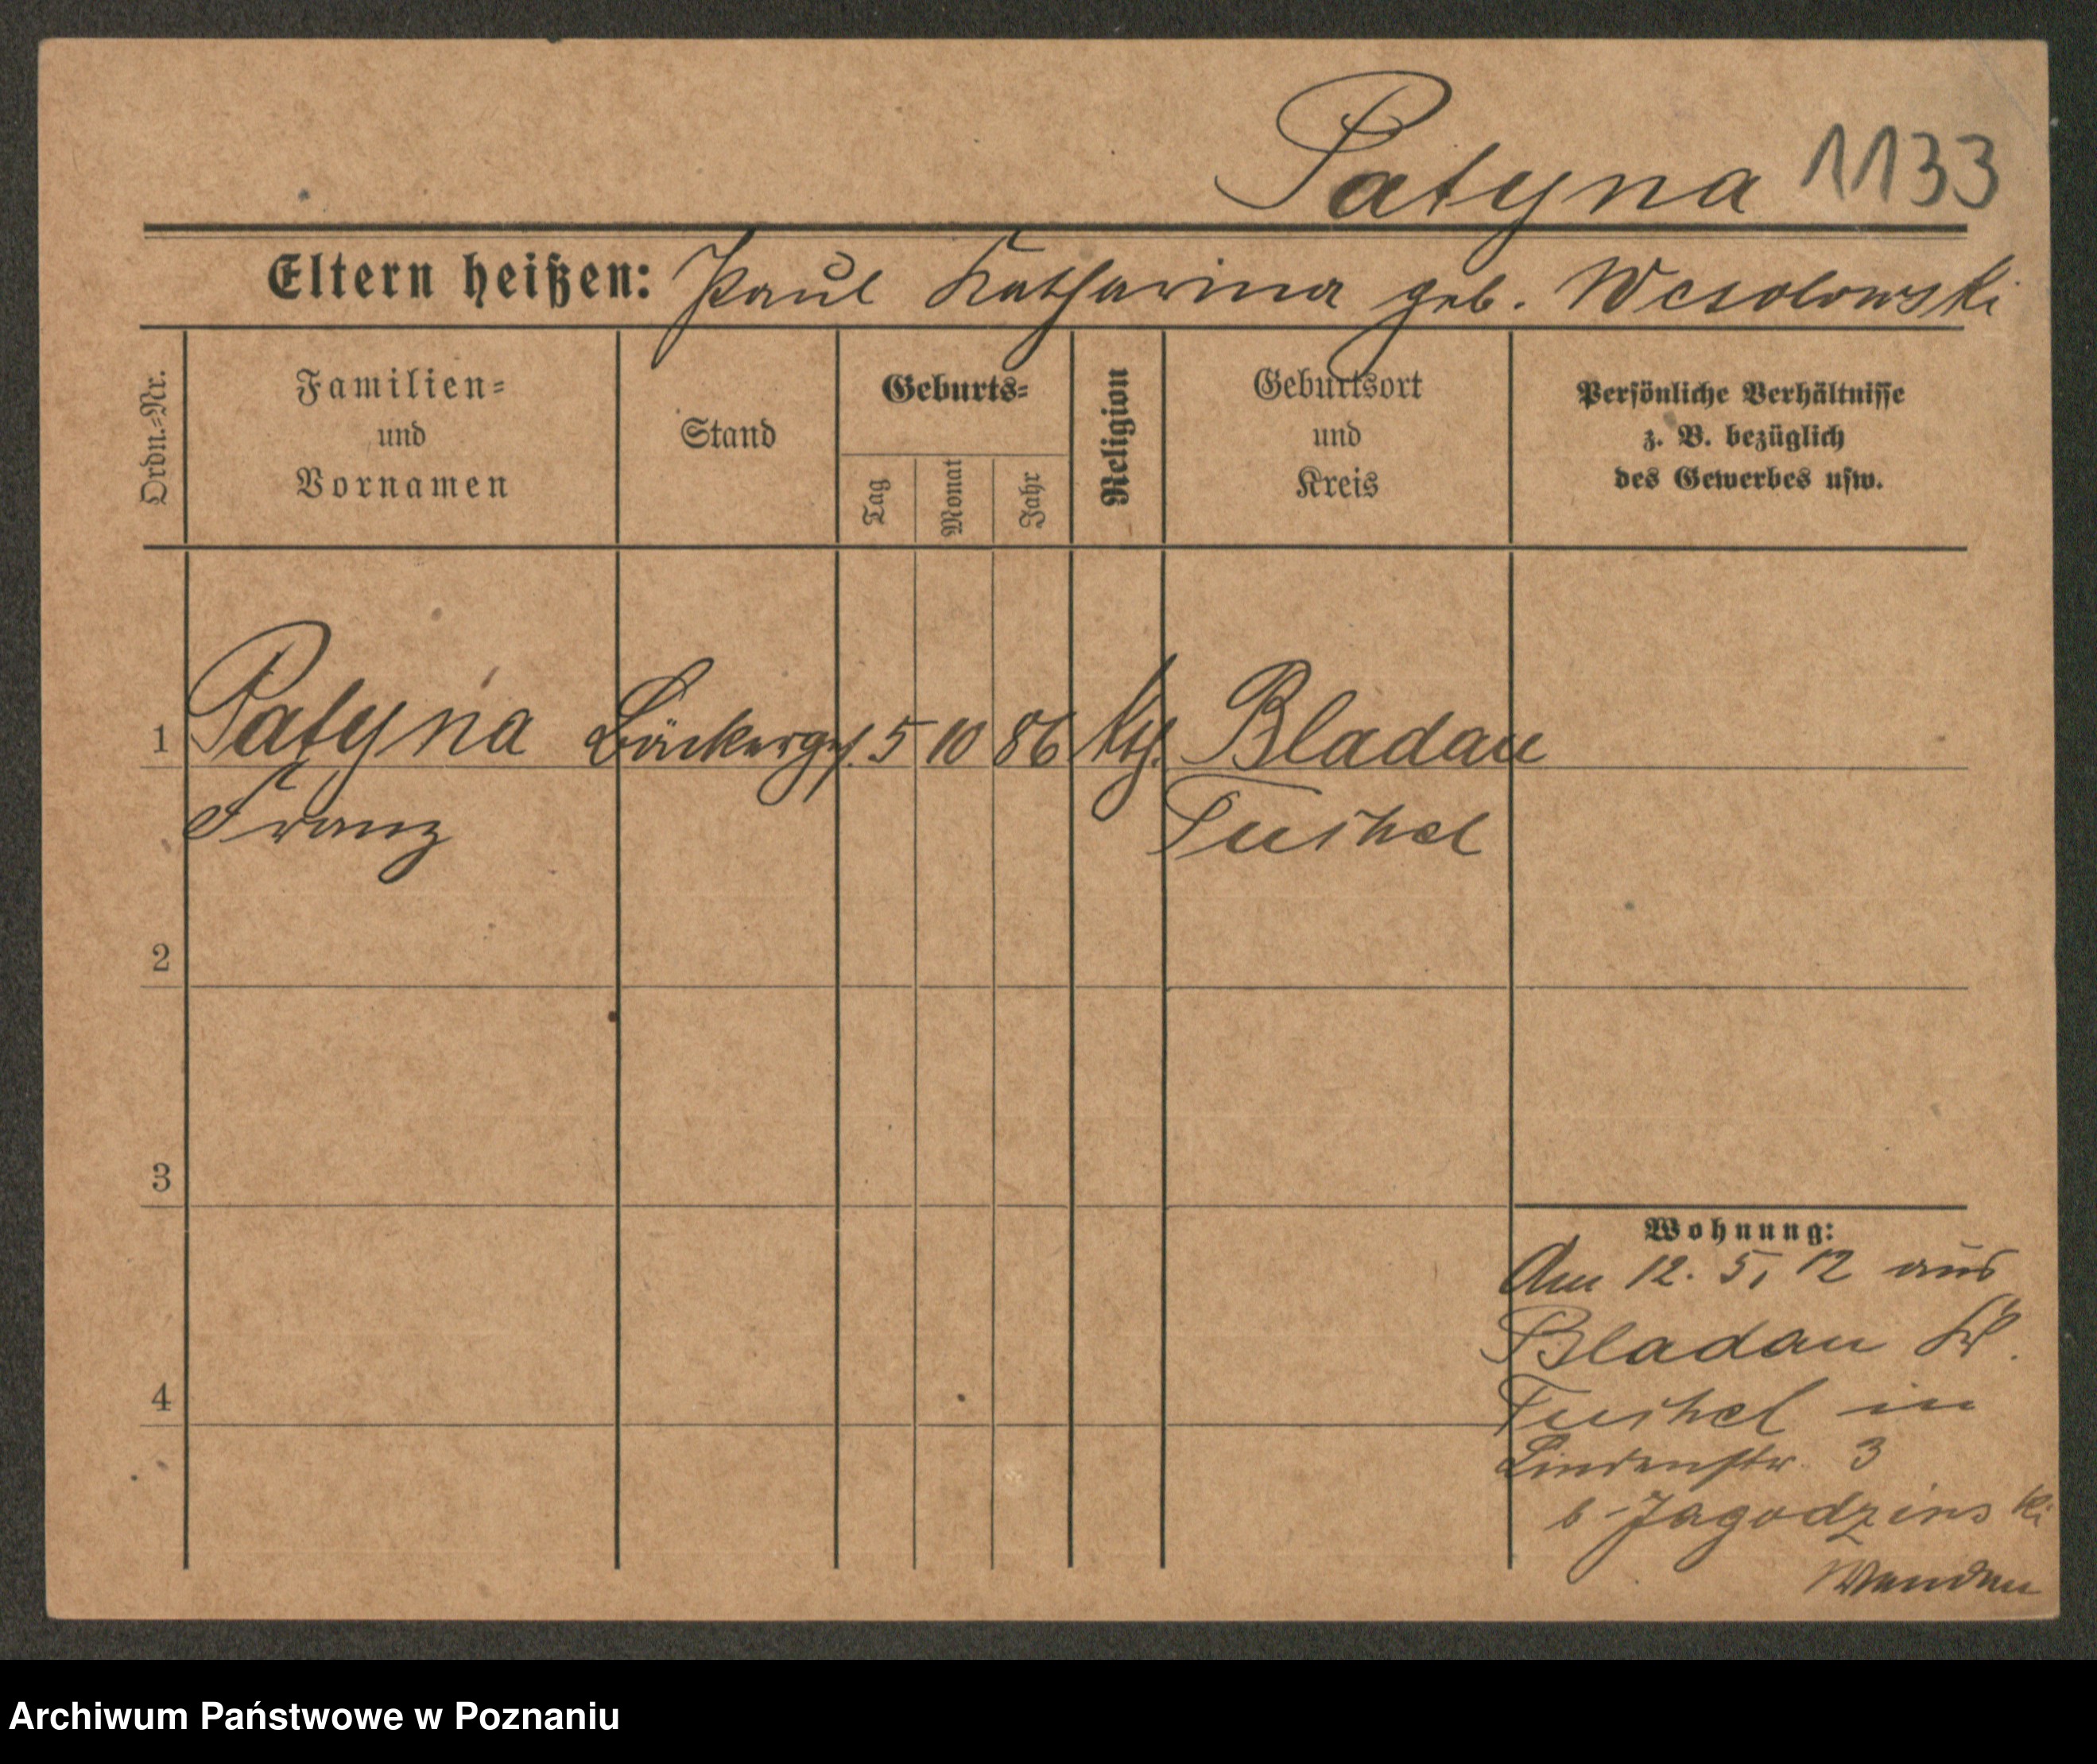 Patyna 1133
Eltern heißen: Paul Katharina geb. Wesolowski
Ordn.-Nr.
Familien-
und
Vornamen
Stand
Geburts-
Tag
Monat
Jahr
Religion
Geburtsort
und
Kreis
Persönliche Verhältnisse
z. B. bezüglich
des Gewerbes usw.
1 Patyna Bäckerges. 5 10 86 kth. Bladau
Franz Tuchel
2
3
4
Wohnung:
Am 12. 5. 12 aus
Bladau Kr.
Tuchel in
Lindenstr. 3
b Jagodzinski
Archiwum Państwowe w Poznaniu